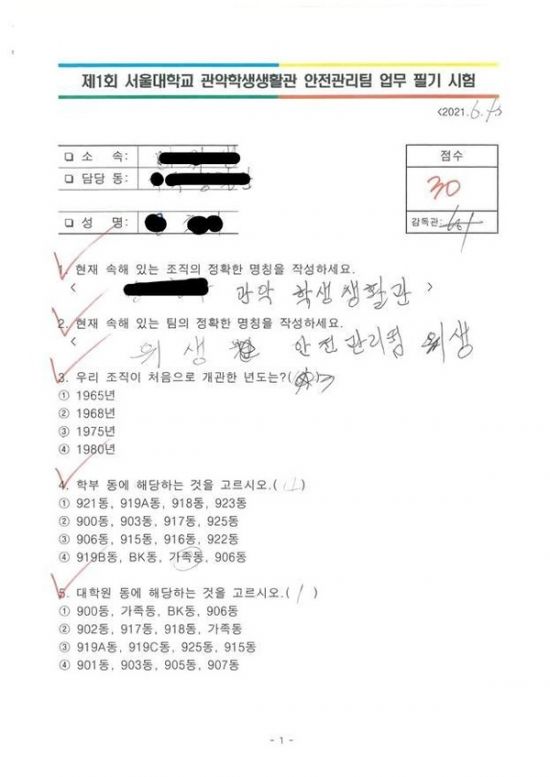 제1회 서울대학교 관악학생생활관 안전관리팀 업무 필기 시험
<2021.6.
❏ 소 속:
❏ 담당 동:
❏ 성 명:
점수
30
감독관:
1. 현재 속해 있는 조직의 정확한 명칭을 작성하세요.
< 관악 학생생활관 >
2. 현재 속해 있는 팀의 정확한 명칭을 작성하세요.
< 위생 안전관리팀 위생
3. 우리 조직이 처음으로 개관한 년도는?( )
① 1965년
② 1968년
③ 1975년
④ 1980년
4. 학부 동에 해당하는 것을 고르시오.( 1 )
① 921동, 919A동, 918동, 923동
② 900동, 903동, 917동, 925동
③ 906동, 915동, 916동, 922동
④ 919B동, BK동, 가족동, 906동
5. 대학원 동에 해당하는 것을 고르시오.( 1 )
① 900동, 가족동, BK동, 906동
② 902동, 917동, 918동, 가족동
③ 919A동, 919C동, 925동, 915동
④ 901동, 903동, 905동, 907동
- 1 -